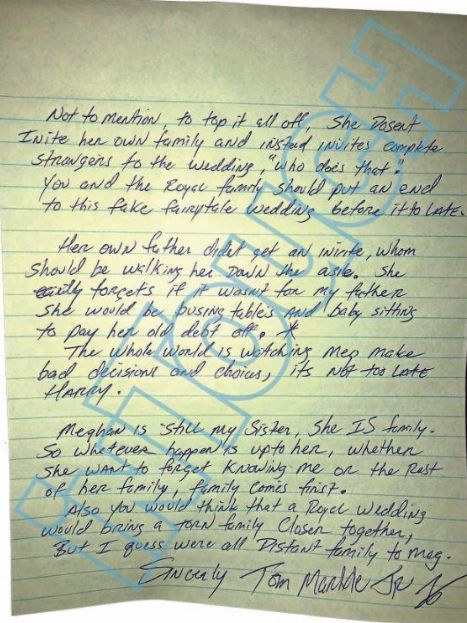 Not to mention, to top it all off, She Dosent
Inite her own family and instead invites complete
strangers to the wedding, "who does that."
You and the Royal family should put an end
to this fake fairytale wedding before it to LATE.
Her own father didnt get an invite, whom
should be walking her down the asle. She
forgets if it wasnt for my father
She would be busing tables and baby sitting
to pay her old debt off. *
The whole world is watching Meg make
bad decisions and choices, its NOT too LATE
HARRY.
Meghan is still my sister, She IS family.
So whatever happen is upto her, whether
She want to forget knowing me or the Rest
of her family, family comes first.
Also you would think that a Royal wedding
would bring a torn family closer together,
But I guess were all Distant family to meg.
Sincerly Tom Markle Jr